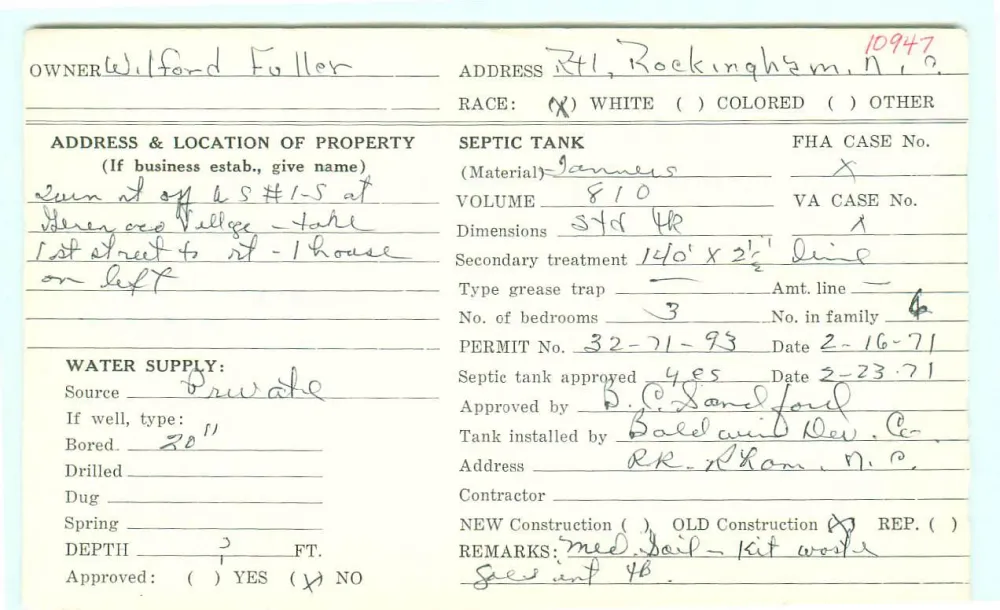 10947
OWNER Wilford Fuller
ADDRESS Rt 1, Rockingham, N.C.
RACE: (X) WHITE ( ) COLORED ( ) OTHER
ADDRESS & LOCATION OF PROPERTY
(If business estab., give name)
Turn rt off US #1-S at
Village - take
1st street to rt - 1 house
on left
WATER SUPPLY:
Source Private
If well, type:
Bored 20"
Drilled
Dug
Spring
DEPTH ? FT.
Approved: ( ) YES (X) NO
SEPTIC TANK
(Material)
VOLUME 810
Dimensions Std
Secondary treatment 140' X 2½' line
Type grease trap —
Amt. line —
No. of bedrooms 3
No. in family
PERMIT No. 32-71-93 Date 2-16-71
Septic tank approved yes Date 2-23-71
Approved by B. C. Sandford
Tank installed by Baldwin Dev. Co-
Address N. C.
Contractor
NEW Construction ( ) OLD Construction (X) REP. ( )
REMARKS: Med. Soil - Kit waste
FHA CASE No.
X
VA CASE No.
X